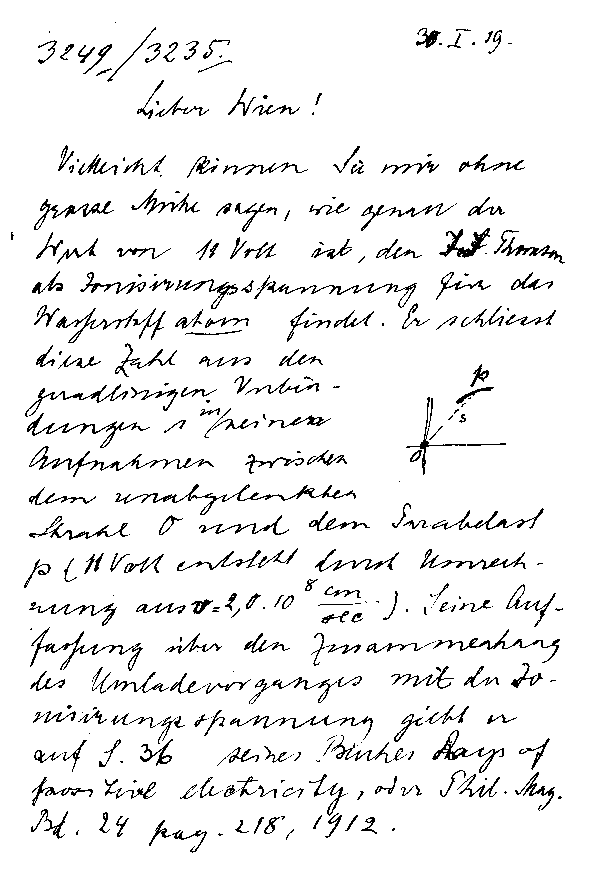 3249/3235.
30. I. 19.
Lieber Wien!
Vielleicht können Sie mir ohne
grosse Mühe sagen, wie genau der
Wert von 11 Volt ist, den J. J. Thomson
als Ionisirungsspannung für das
Wasserstoffatom findet. Er schliesst
diese Zahl aus den
geradlinigen Verbin-
dungen s in seinen
Aufnahmen zwischen
dem unabgelenkten
Strahl O und dem Parabelast
p (11 Volt entsteht durch Umrech-
nung aus v = 2,0.10^8 cm/sec). Seine Auf-
fassung über den Zusammenhang
des Umladevorganges mit der Io-
nisirungsspannung giebt er
auf S. 36 seines Buches Rays of
positive electricity, oder Phil. Mag.
Bd. 24 pag. 218, 1912.
p
s
O